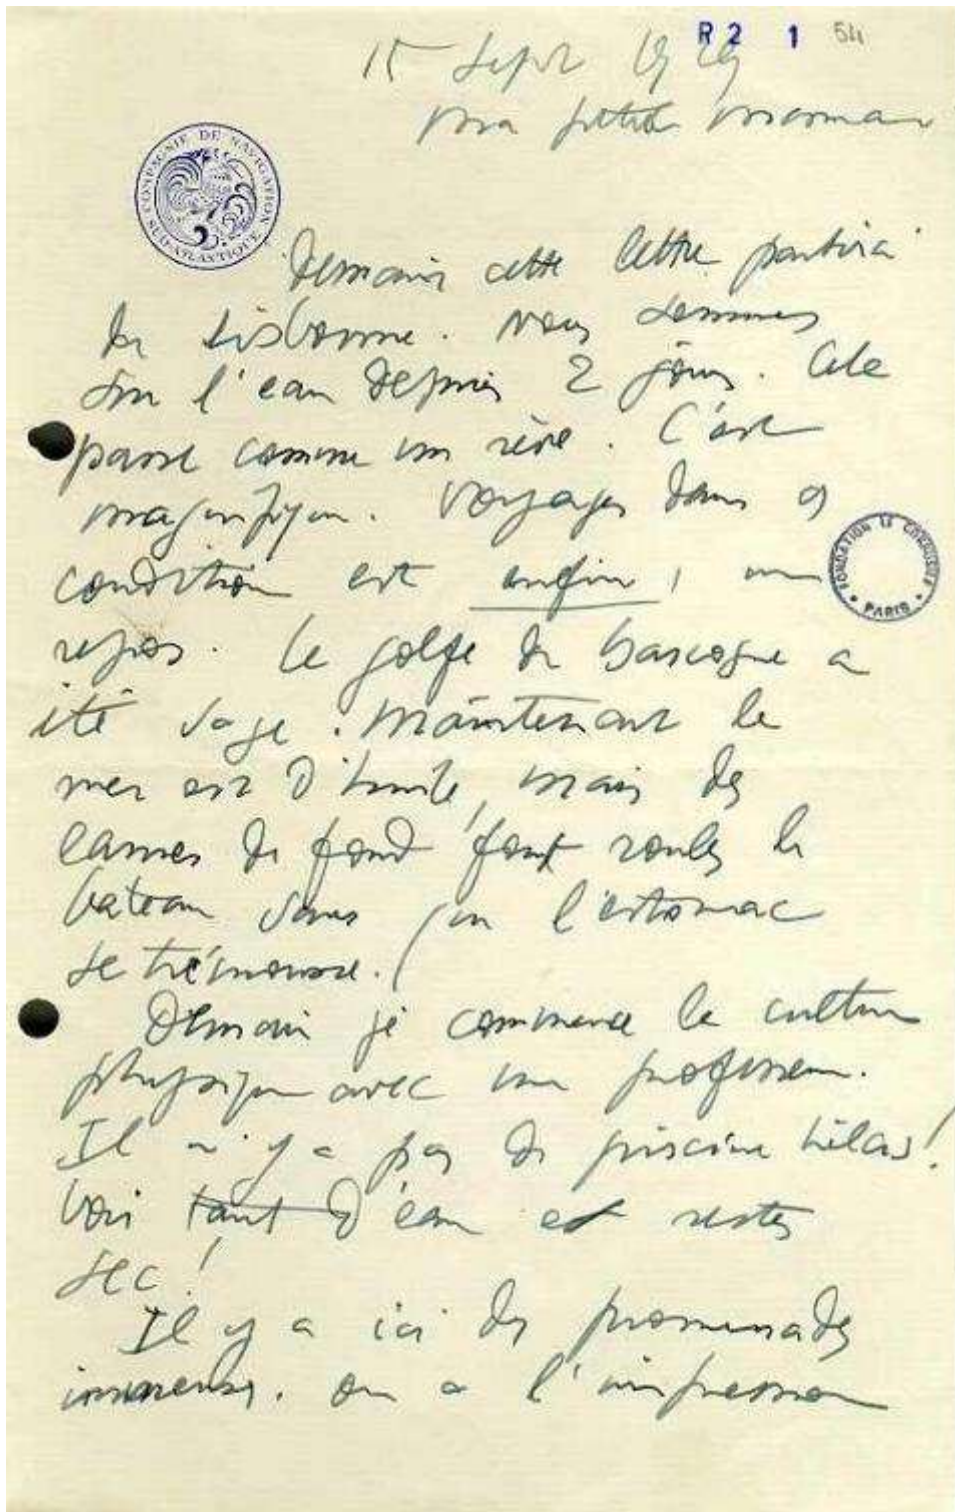 R2 1 54
15 Sept 1929
ma petite maman
COMPAGNIE DE NAVIGATION SUD-ATLANTIQUE
Demain cette lettre partira
de Lisbonne. Nous sommes
sur l'eau depuis 2 jours. Cela
passe comme un rêve. C'est
magnifique. Voyager dans ces
condition est enfin, un
FONDATION LE CORBUSIER PARIS
repos. Le golfe de Gascogne a
été sage. Maintenant la
mer est d'huile, mais des
lames de fond font rouler le
bateau sans que l'estomac
se trémousse.
Demain je commence la culture
physique avec un professeur.
Il n'y a pas de piscine hélas!
Voir tant d'eau et rester
sec!
Il y a ici des promenades
immenses. on a l'impression